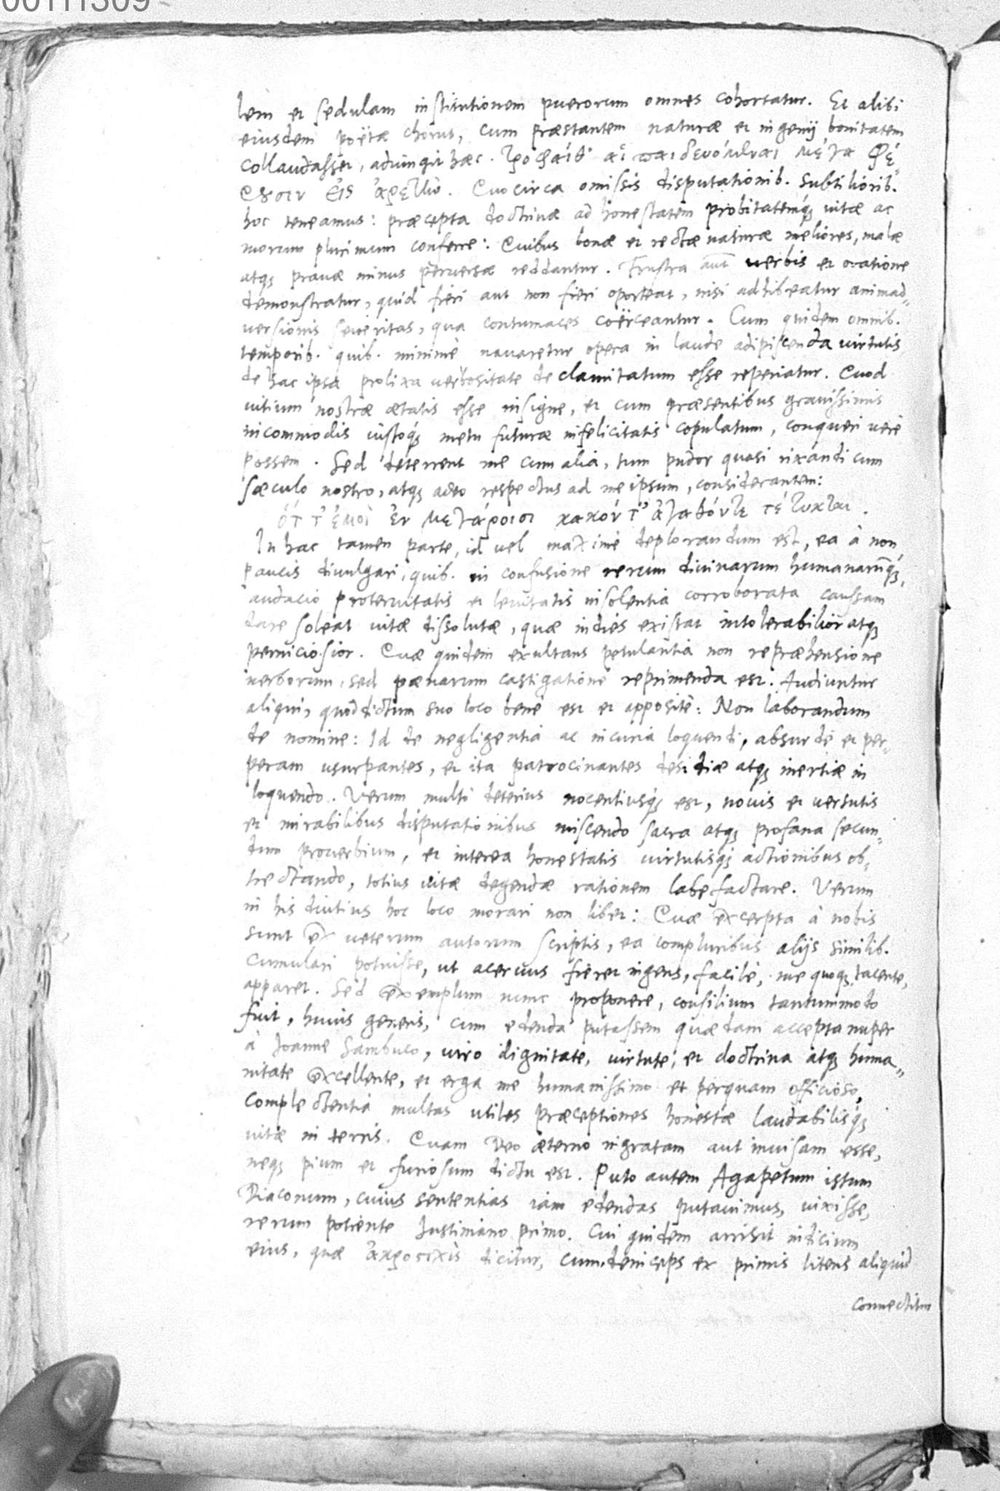 00111309
lem et sedulam institutionem puerorum omnes cohortatur. Et alibi
eiusdem poëtae chorus, cum praestantem naturae et ingenij bonitatem
collaudasset, adiungit haec. τροφαί θ' αἱ παιδευόμεναι μέγα φέ-
ρουσιν εἰς ἀρετὴν. Quocirca omissis disputationib. subtiliorib.
hoc teneamus: praecepta doctrinae ad honestatem probitatemq́ꝫ vitae ac
morum plurimum conferre: Quibus bonae et rectae naturae meliores, malae
atqꝫ pravae minus perversae reddantur. Frustra aut verbis et oratione
demonstratur, quid fieri aut non fieri oporteat, nisi adhibeatur animad-
versionis severitas, qua contumaces coërceantur. Cum quidem omnib.
temporib. quib. minimè navaretur opera in laude adipiscenda virtutis
de hac ipsa prolixa verbositate declamitatum esse reperiatur. Quod
vitium nostrae aetatis esse insigne, et cum praesentibus gravissimis
incommodis iustoq́ꝫ metu futurae infelicitatis copulatum, conqueri verè
possem. Sed deterrent me cum alia, tum pudor quasi rixandi cum
saeculo nostro, atqꝫ adeo respectus ad me ipsum, considerantem:
ὅτ τ' ἐμοὶ ἐν μεγάροισι κακόν τ' ἀγαθόν τε τέτυκται.
In hac tamen parte, id vel maximè deplorandum est, ea à non
paucis divulgari, quib. in confusione rerum divinarum humanarūq́ꝫ,
audacia protervitatis et levitatis insolentia corroborata caussam
dare soleat vitae dissolutae, quae indies existat intolerabilior atqꝫ
perniciosior. Quae quidem exultans petulantia non repraehensione
verborum, sed poenarum castigatione reprimenda est. Audiuntur
aliqui, quod dictum suo loco bene est et appositè: Non laborandum
de nomine: Id de negligentia ac incuria loquendi, absurdè et per-
peram usurpantes, et ita patrocinantes desidiae atqꝫ inertiae in
loquendo. Verum multi deterius nocentiusq́ꝫ est, novis et versutis
et mirabilibus disputationibus miscendo sacra atqꝫ profana secun-
dum proverbium, et interea honestatis virtutisq́ꝫ actionibus ob-
trectando, totius vitae degendae rationem labefactare. Verum
in his diutius hoc loco morari non libet: Quae excerpta à nobis
sunt ex veterum autorum scriptis, ea compluribus alijs similib.
cumulari potuisse, ut acervus fieret ingens, facilè, me quoqꝫ tacente,
apparet. Sed exemplum nunc proponere, consilium tantummodo
fuit, huius generis, cum edenda putassem quaedam accepta nuper
à Joanne Sambuco, viro dignitate, virtute, et doctrina atqꝫ huma-
nitate excellente, et erga me humanissimo et perquam officioso,
complectentia multas utiles praeceptiones honestae laudabilisq́ꝫ
vitae in terris. Quam Deo aeterno ingratam aut invisam esse,
neqꝫ pium et furiosum dictu est. Puto autem Agapetum istum
Diaconum, cuius sententias iam edendas putavimus, vixisse,
rerum potiente Justiniano primo. Cui quidem arrisit indicium
eius, quae ἀκροστιχὶς dicitur, cum deinceps ex primis literis aliquid
connectitur